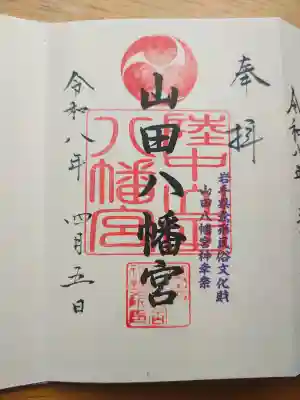 奉拝
岩手県無形民俗文化財
山田八幡宮神幸祭
山田八幡宮
陸中山田
八幡宮
令和八年 四月五日